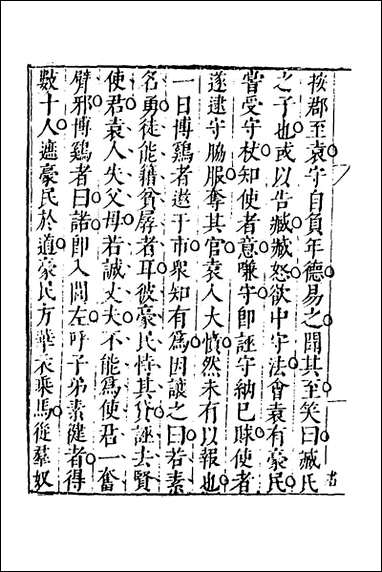 按郡至袁守自負年德易之聞其至笑曰臧氏
之子也或以告臧臧怒欲中守法會袁有豪民
嘗受守杖知使者意嗛守即誣守納已賕使者
遂逮守脇服奪其官袁人大憤然未有以報也
一日博鷄者遨于市衆知有爲因讓之曰若素
名勇徒能藉貧孱者耳彼豪民恃其貲誣去賢
使君袁人失父母若誠丈夫不能爲使君一奮
臂邪博鷄者曰諾即入閭左呼子弟素健者得
數十人遮豪民於道豪民方華衣乘馬從羣奴